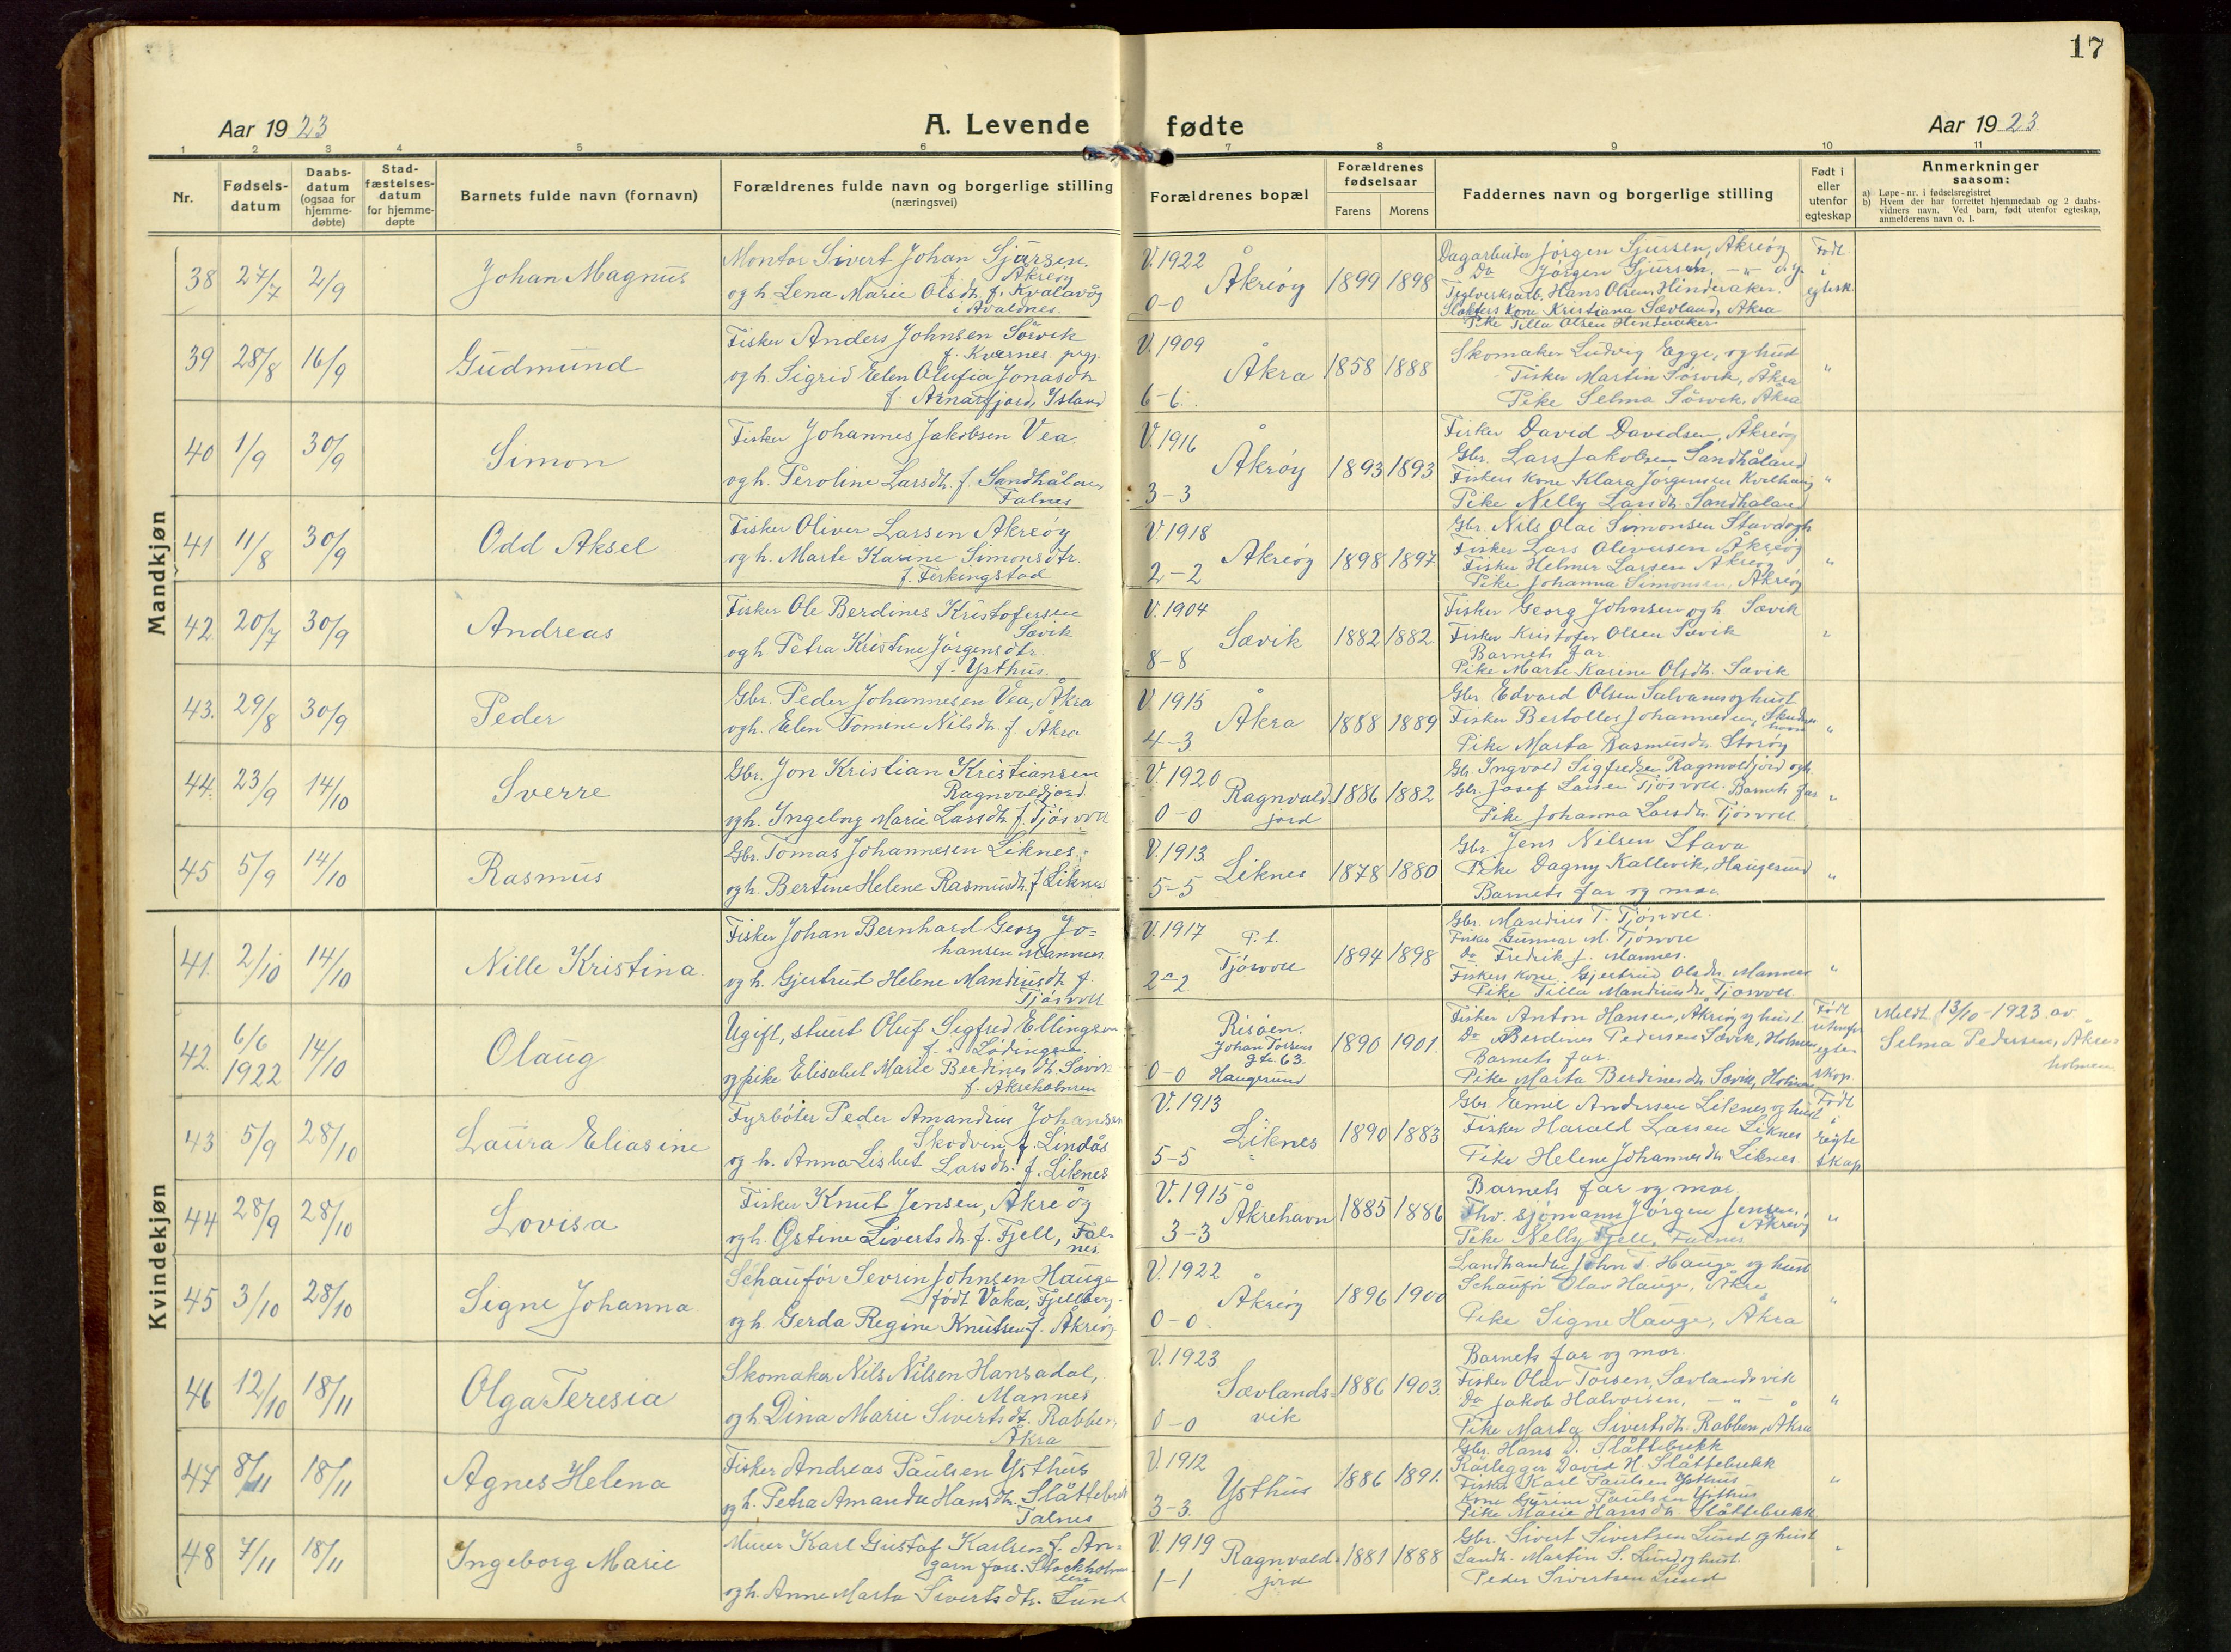 17
Aar 19 23
A. Levende fødte
Aar 19 23
1 2 3 4 5 6 7 8 9 10 11
Nr.
Fødsels-
datum
Daabs-
datum
(ogsaa for
hjemme-
døbte)
Stad-
fæstelses-
datum
for hjemme-
døpte
Barnets fulde navn (fornavn)
Forældrenes fulde navn og borgerlige stilling
(næringsvei)
Forældrenes bopæl
Forældrenes
fødselsaar
Farens Morens
Faddernes navn og borgerlige stilling
Født i
eller
utenfor
egteskap
Anmerkninger
saasom:
a) Løpe-nr. i fødselsregistret
b) Hvem der har forrettet hjemmedaab og 2 daabs-
vidners navn. Ved barn, født utenfor egteskap,
anmelderens navn o. l.
Mandkjøn
38 27/7 2/9 Johan Magnus
Montør Sivert Johan Sjursen
f. Åkreøy
og h. Lena Marie Olsdh. f. Kvalavåg
i Avaldnes.
V. 1922
Åkreøy 1899 1898
0-0
Dagarbeider Jørgen Sjursen, Åkreøy
Do Jørgen Sjursen
Teglverksarb. Hans Olsen Hinderaker.
Slakters kone Kristiana Sævland, Åkra
Pike Tilla Olsen Hinderaker
Født
i
egtesk.
39 28/8 16/9 Gudmund
Fisker Anders Johnsen Sørvik
f. Kværnes prgj.
og h. Sigrid Elen Olufia Jonasdh
f. Arnarfjord, Island
V. 1909
Åkra 1858 1888
6-6.
Skomaker Ludvig Egge, og hust
Fisker Martin Sørvik, Åkra
Pike Selma Sørvik, Åkra
"
40 1/9 30/9 Simon
Fisker Johannes Jakobsen Vea
og h. Peroline Larsdh. f. Sandhåland
Falnes
V. 1916
Åkrøy 1893 1893
3-3
Fisker David Davidsen, Åkreøy
Gbr. Lars Jakobsen Sandhåland
Fiskers kone Klara Jørgensen Kvelhaug
Pike Nelly Larsdh. Sandhaland
"
41 11/8 30/9 Odd Aksel
Fisker Oliver Larsen Åkreøy
og h. Marte Karine Simonsdtr.
f. Ferkingstad
V. 1918
Åkreøy 1898 1897
2-2
Gbr. Nils Olai Simonsen Stava og h
Fisker Lars Oliversen Åkreøy
Fisker Helmer Larsen Åkreøy
Pike Johanna Simonsen, Åkreøy
"
42. 20/7 30/9 Andreas
Fisker Ole Berdines Kristofersen
Sævik
og h. Petra Kristine Jørgensdtr.
f. Ysthus.
V. 1904
Sævik 1882 1882
8-8
Fisker Georg Johnsen og h. Sævik
Fisker Kristofer Olsen Sævik
Barnets far.
Pike Marte Karine Olsdh. Sævik
"
43. 29/8 30/9 Peder
Gbr. Peder Johannesen Vea, Åkra
og h. Elen Tomine Nilsdh. f. Åkra
V. 1915
Åkra 1888 1889
4-3
Gbr. Edvard Olsen Salvanes og hust
Fisker Bertolles Johannesen,
Pike Marta Rasmusdh. Storøy
"
44. 23/9 14/10 Sverre
Gbr. Jon Kristian Kristiansen
Ragnvaldjord
og h. Ingeborg Marie Larsdh. f. Tjøsvoll
V. 1920
Ragnvald-
jord
1886 1882
0-0
Gbr. Ingvald Sigfredsen Ragnvaldjord og h
Gbr. Josef Larsen Tjøsvoll. Barnets far
Pike Johanna Larsdh. Tjøsvoll
"
45 5/9 14/10 Rasmus
Gbr. Tomas Johannesen Liknes.
og h. Bertine Helene Rasmusdh. f. Liknes
V. 1913
Liknes 1878 1880
5-5
Gbr. Jens Nilsen Stava
Pike Dagny Kallevik, Haugesund
Barnets far og mor.
"
Kvindekjøn
41. 2/10 14/10 Nille Kristina.
Fisker Johan Bernhard Georg Jo=
hansen Mannes
og h. Gjertrud Helene Mandiusdh. f.
Tjøsvoll
V. 1917
P. t.
Tjøsvoll 1894 1898
2-2
Gbr. Mandius T. Tjøsvoll.
Fisker Gunnar M. Tjøsvoll
Do Fredrik J. Mannes.
Fiskers kone Gjertrud Olsdh. Mannes
Pike Tilla Mandiusdh. Tjøsvoll.
"
42. 6/6 1922 14/10 Olaug
Ugift, stuert Oluf Sigfred Ellingsen
f. i Lødingen
og pike Elisabet Marie Berdines dh. Sævik
f. Åkreholmen
Risøen.
Johan
gt. 63.
Haugesund
0-0
1890 1901.
Fisker Anton Hansen, Åkreøy og hust.
Do Berdines Pedersen Sævik, Holmen
Barnets far.
Pike Marta Berdines dh. Sævik, Holmen
Født
utenfor
egte-
skap
Meldt 13/10-1923 av
Selma Pedersen, Åkre-
holmen
43 5/9 28/10 Laura Eliasine
Fyrbøter Peder Amandius Johansen
Skodvin f. Lindås
og h. Anna Lisbet Larsdh. f. Liknes
V. 1913
Liknes 1890 1883
5-5
Gbr. Emil Andersen Liknes og hust
Fisker Harald Larsen Liknes
Pike Helene Johannesdh. Liknes.
Født
i
egte
skap
44 28/9 28/10 Lovisa
Fisker Knut Jensen, Åkreøy
og h. Gstine Siverts dh. f. Fjell, Fal-
nes.
V. 1915
Åkrehavn 1885 1886
3-3
Barnets far og mor.
Fhv. sjømann Jørgen Jensen,
Åkreøy
Pike Nelly Fjell, Falnes
"
45 3/10 28/10 Signe Johanna
Schaufør Sevrin Johnsen Hauge
født Vaka, Fjelberg
og h. Gerda Regine Knutsen f. Åkreøy
V. 1922
Åkreøy 1896 1900
0-0
Landhandler John T. Hauge og hust
Schaufør Olav Hauge, Åkra
Pike Signe Hauge, Åkra
"
46 12/10 18/11 Olga Teresia
Skomaker Nils Nilsen Hansadal,
Mannes
og h. Dina Marie Siverts dt. Rabben,
Åkra
V. 1923
Sævlands=
vik
1886 1903.
0-0
Barnets far og mor.
Fisker Olav Torsen, Sævlandsvik
Do Jakob Halvorsen, - " -
Pike Marta Sivertsdh. Rabben, Åkra
"
47 8/11 18/11 Agnes Helena
Fisker Andreas Paulsen Ysthus
og h. Petra Amanda Hansdh. Slåttebrekk
Falnes
V. 1912
Ysthus 1886 1891.
3-3.
Gbr. Hans D. Slåttebrekk
Rørlegger David H. Slåttebrekk
Fisker Karl Paulsen Ysthus
Kone Gurine Paulsen Ysthus
Pike Marie Hansdh. Slåttebrekk
"
48 7/11 18/11 Ingeborg Marie
Murer Karl Gustaf Karlsson f. An=
garn fors. Stockholms
len
og h. Anne Marta Siverts dtr. Lund
V. 1919
Ragnvald-
jord
1881 1888
1-1
Gbr. Sivert Sivertsen Lund og hust
Landh. Martin S. Lund og hust.
Peder Sivertsen Lund
"